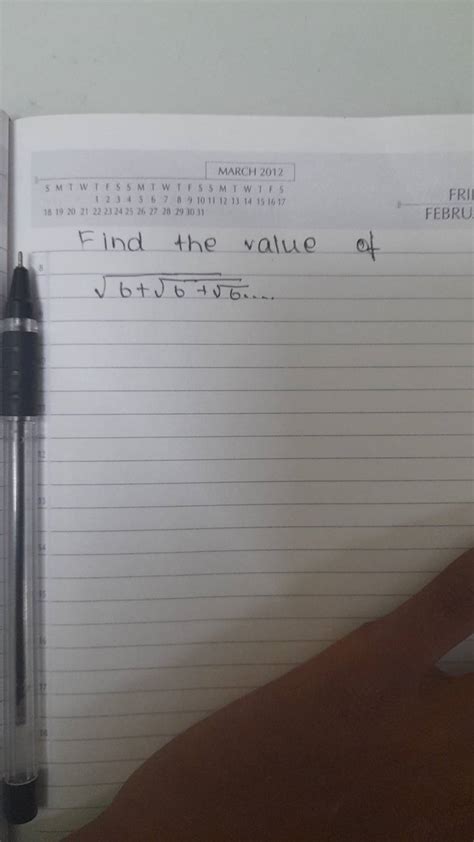 MARCH 2012
S M T W T F S S M T W T F S S M T W T F S
1 2 3 4 5 6 7 8 9 10 11 12 13 14 15 16 17
18 19 20 21 22 23 24 25 26 27 28 29 30 31
FRI
FEBRU
Find the value of
√6+√6+√6....
8